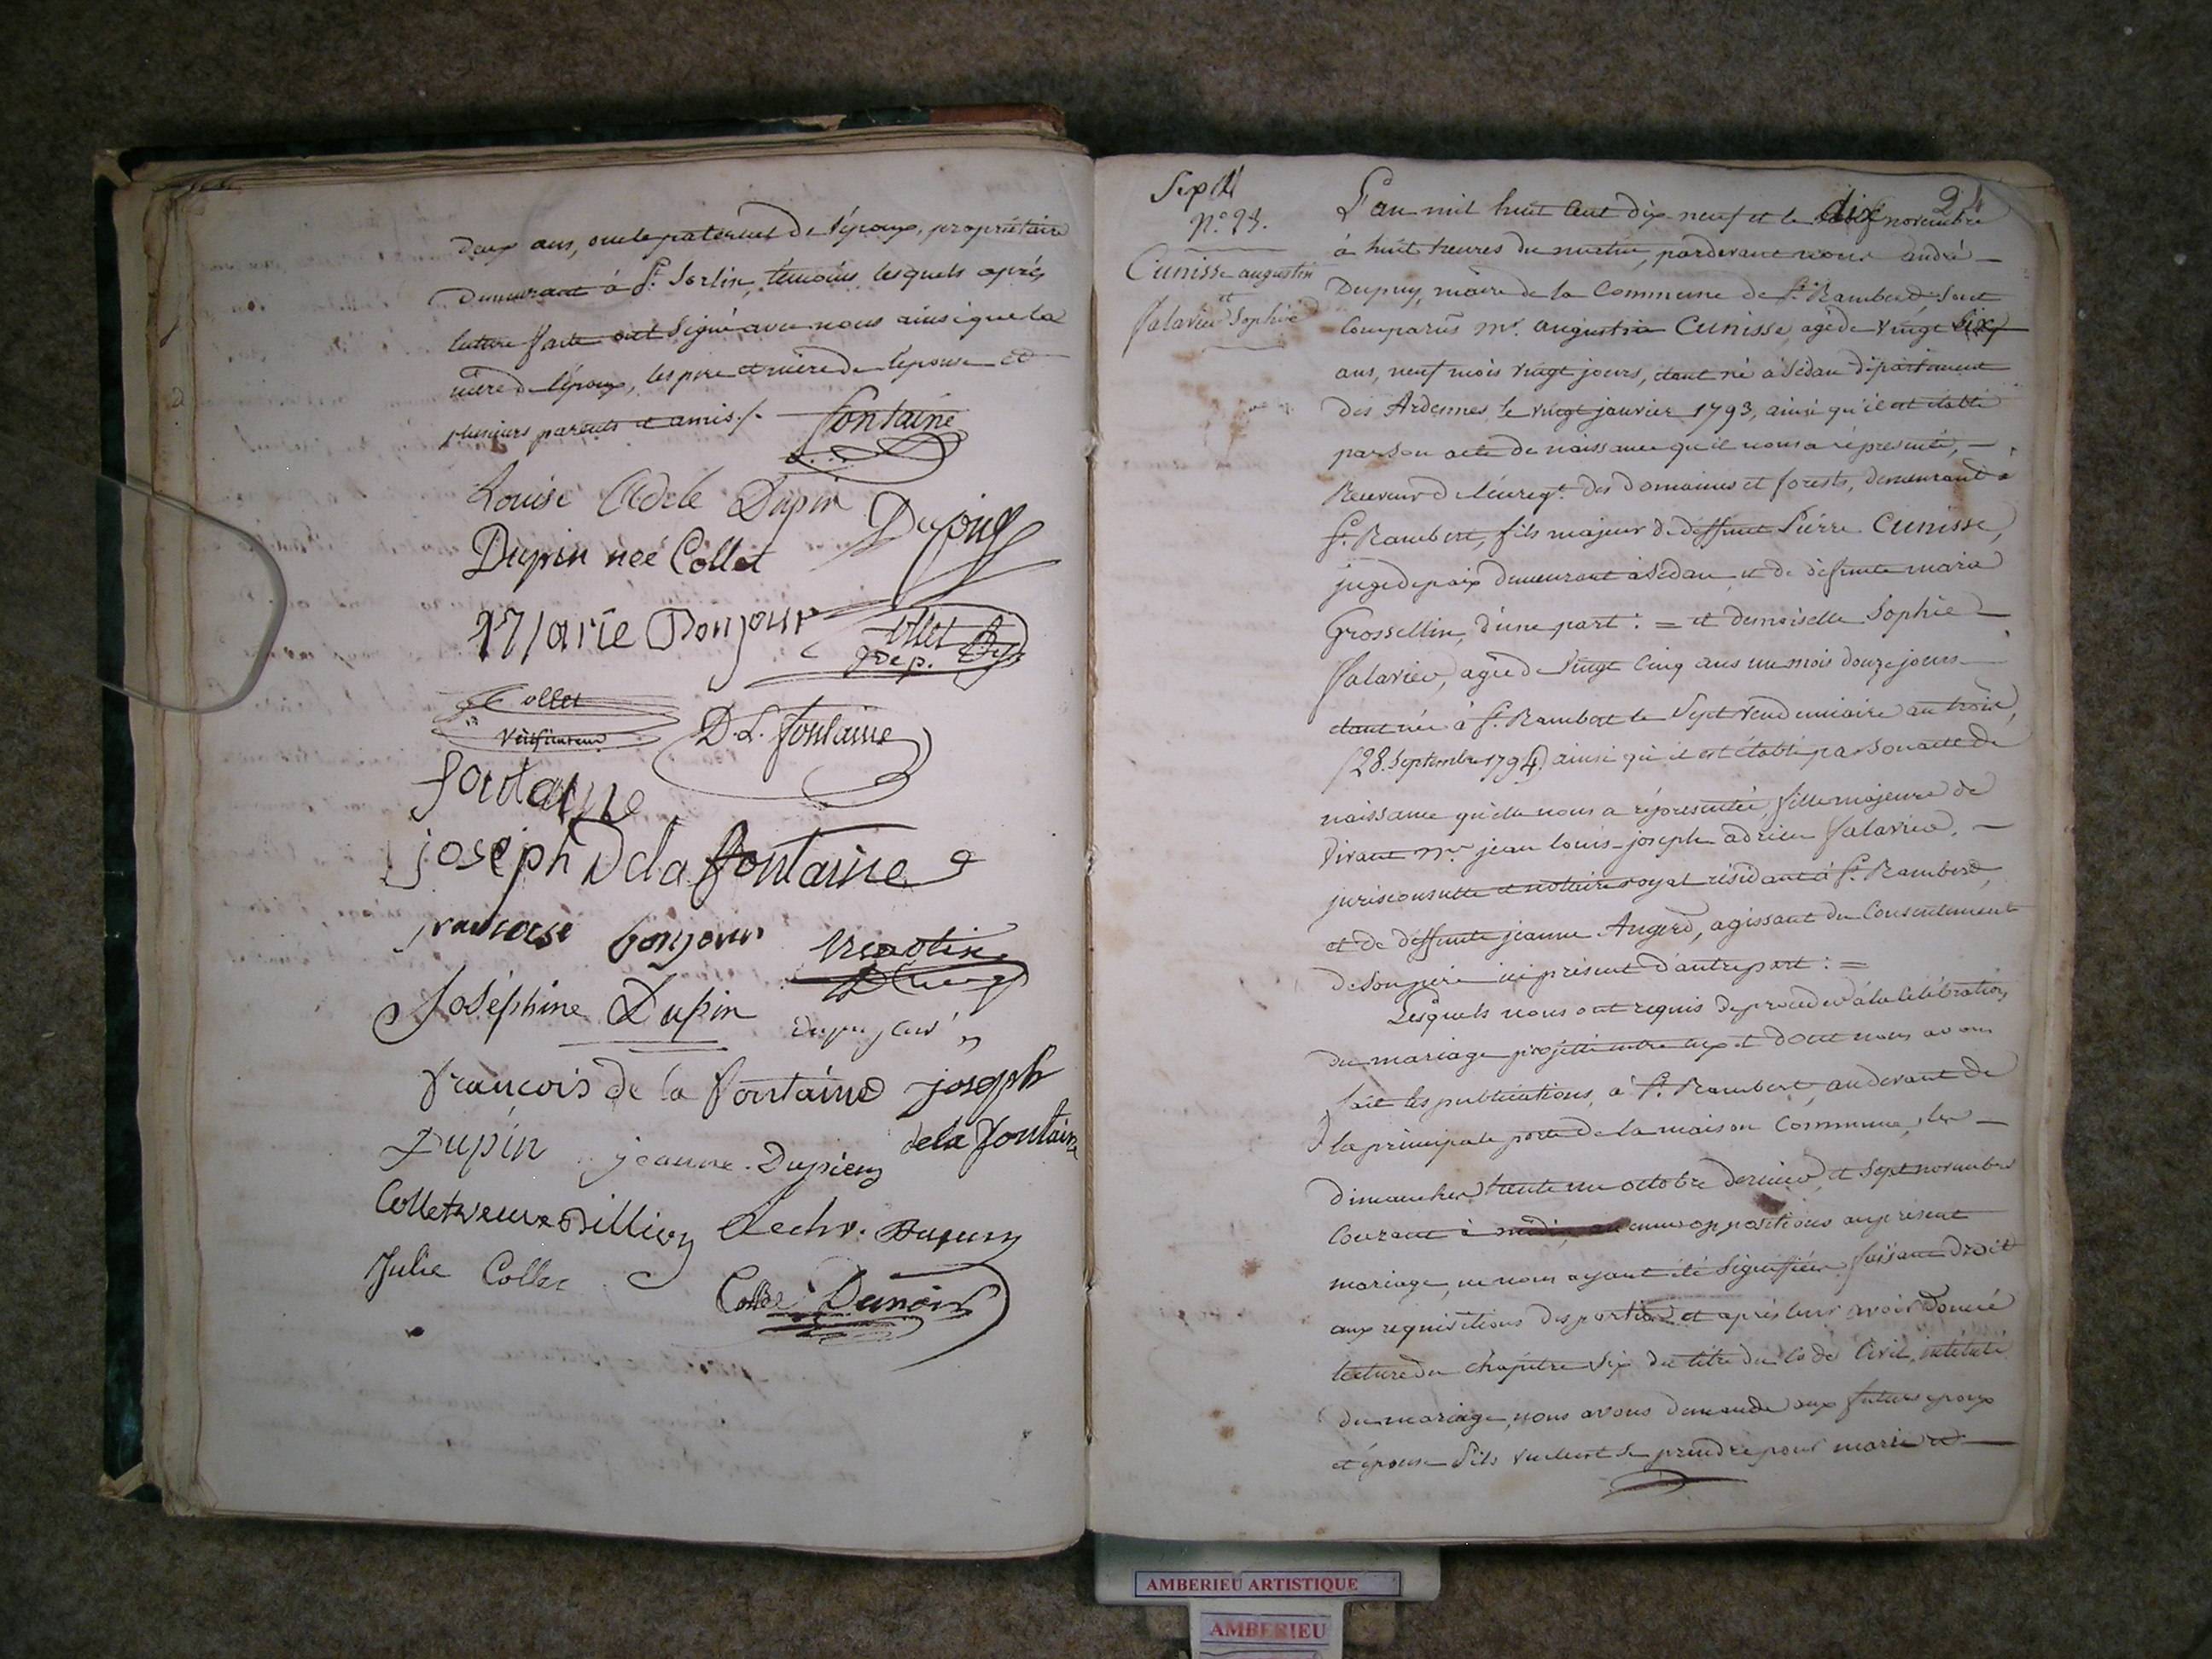 deux ans, oncle paternel de l'époux, propriétaire
demeurant à St. Sorlin, témoins lesquels après
lecture faite ont signé avec nous ainsi que la
mère de l'époux, les père et mère de l'épouse et
plusieurs parents et amis./. fontaine
Louise Adele Dupin
Dupin neé Collet Dupuy
Marie Bonjour
Collet
Collet
vérificateur D. L. fontaine
fontaine
joseph Dela fontaine
francoise bonjour
Joséphine Dupin
francois de la fontaine joseph
Dupin jeanne Dupin dela fontaine
Collet veuve
Julie Collet Collet Dunoir
24
N.° 23.
Cunisse augustin
et
Salavier Sophie
L'an mil huit cent dix neuf et le dix novembre
à huit heures du matin, pardevant nous andré
Dupuy, maire de la Commune de St. Rambert sont
Comparûs mr. augustin Cunisse, agé de vingt six
ans, neuf mois vingt jours, étant né à Sédan département
des Ardennes le vingt janvier 1793, ainsi qu'il est établi
par son acte de naissance qu'il nous a représenté,
Receveur de l'enregt. des domaines et forests, demeurant à
St. Rambert, fils majeur de deffunt Pierre Cunisse,
juge de paix demeurant à Sédan et de défunte marie
Grossellin, d'une part : = et demoiselle Sophie
Salavier, agée de vingt cinq ans un mois douze jours
étant née à St. Rambert le Sept vendemiaire an trois,
(28. Septembre 1794) ainsi qu'il est établi par son acte de
naissance qu'elle nous a représentée, fille majeure de
vivant mr. jean louis joseph adrien Salavier,
jurisconsulte et nottaire royal résidant à St. Rambert,
et de deffunte jeanne Augerd, agissant du Consentement
de son père ici présent d'autre part : =
Lesquels nous ont requis de proceder à la Célébration
du mariage projetté entre eux et dont nous avons
fait les publications, à St. Rambert, audevant de
la principale porte de la maison Commune, les
dimanches trente un octobre dernier, et sept novembre
Courant à midi, aucunes oppositions au présent
mariage, ne nous ayant été Signifiées faisant droit
aux requisitions des parties et après leur avoir donné
lecture du chapitre Six du titre du Code Civil, intitulé
du mariage, nous avons demandé aux futurs epoux
et épouse S'ils veulent se prendre pour mari et
AMBERIEU ARTISTIQUE
AMBERIEU